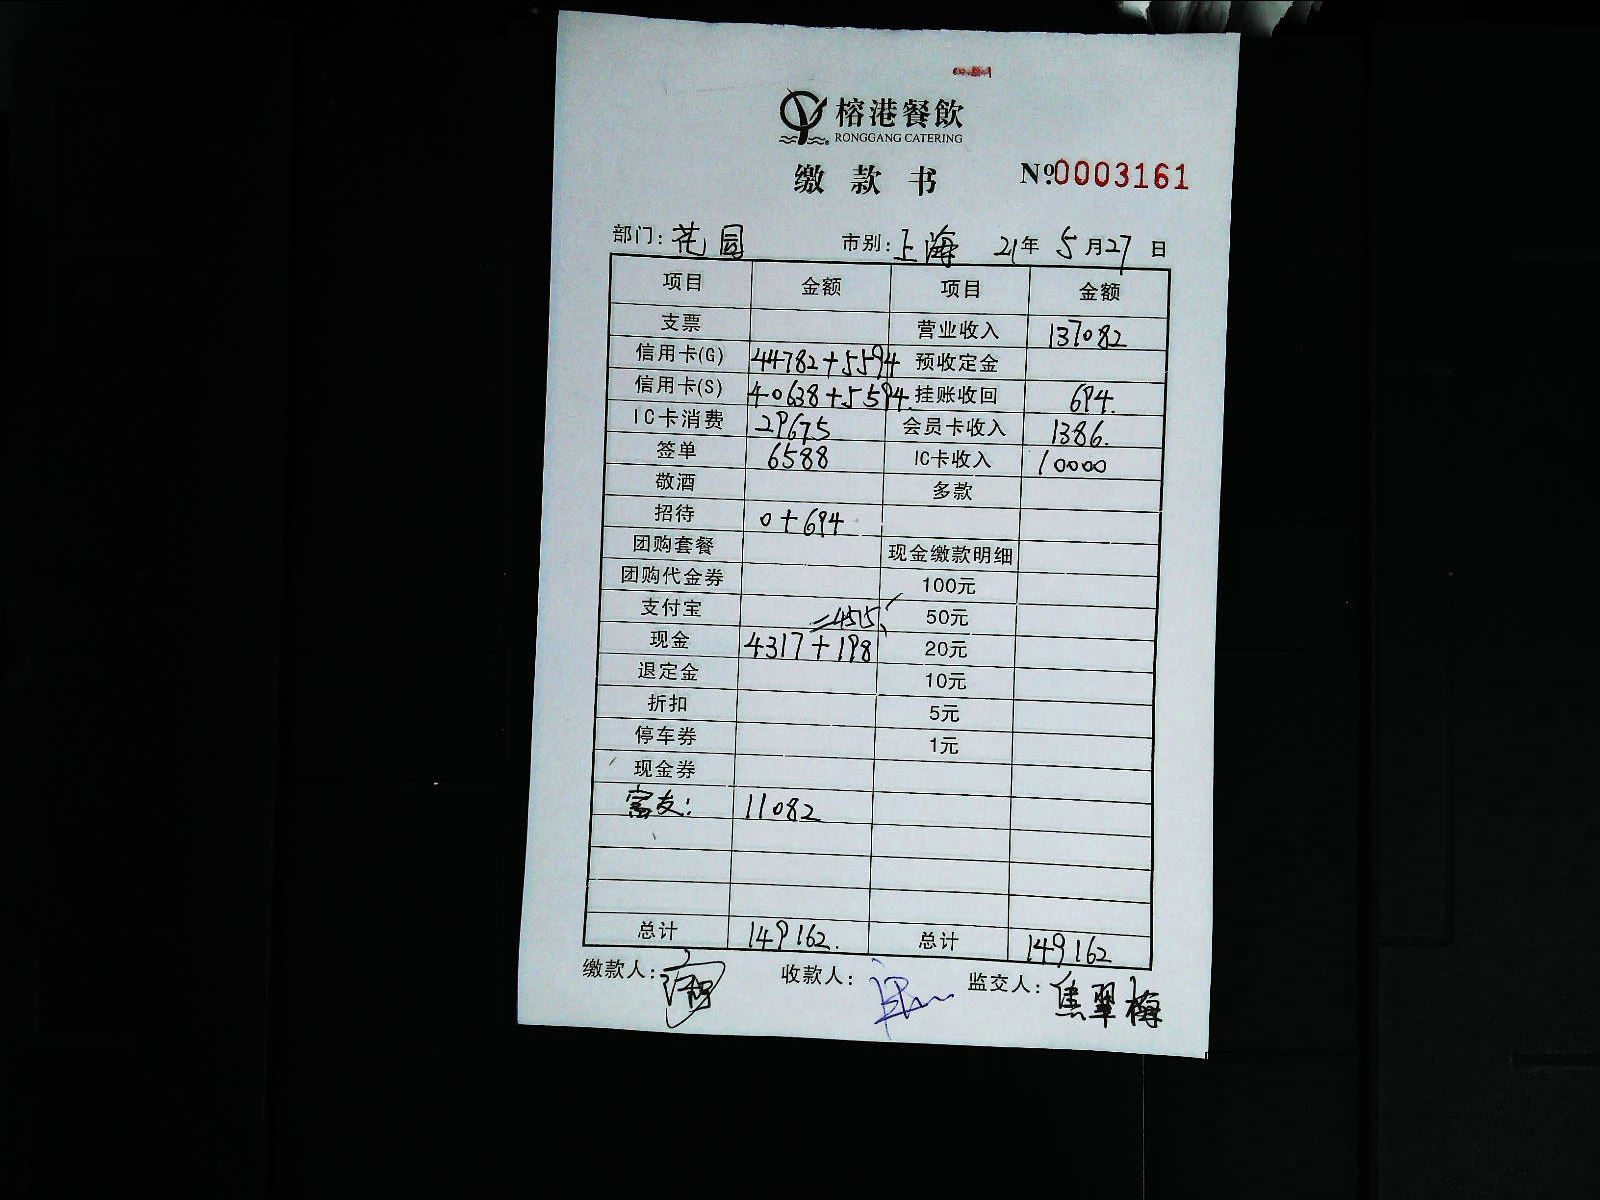 榕港餐飲
RONGGANG CATERING
缴款书 №0003161
部门: 花园 市别: 上海 21年 5月27日
项目 金额 项目 金额
支票 营业收入 137082
信用卡(G) 44782+5594 预收定金
信用卡(S) 40638+5594. 挂账收回 694.
IC卡消费 29675 会员卡收入 1386.
签单 6588 IC卡收入 10000
敬酒 多款
招待 0+694
团购套餐 现金缴款明细
团购代金券 100元
支付宝 =4515 50元
现金 4317+198 20元
退定金 10元
折扣 5元
停车券 1元
现金券
富友: 11082
总计 149162. 总计 149162
缴款人: 收款人: 监交人: 焦翠梅